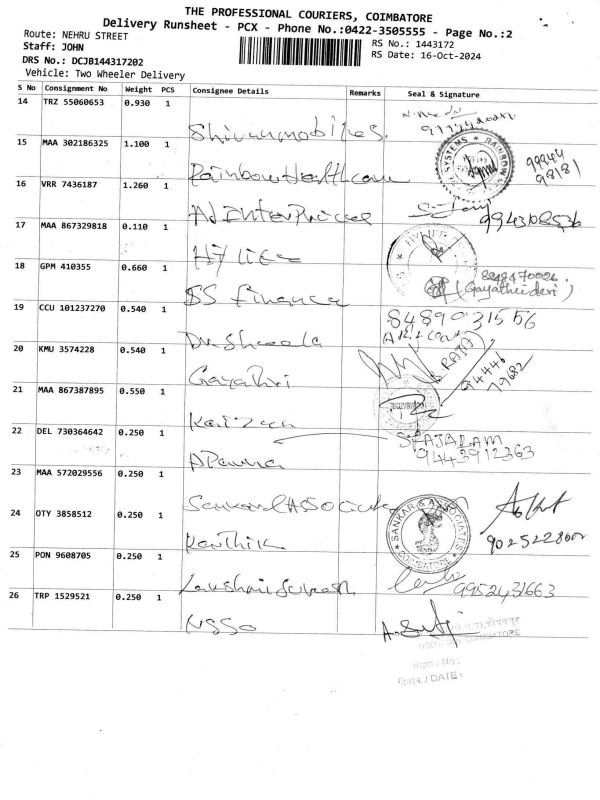 THE PROFESSIONAL COURIERS, COIMBATORE
Delivery Runsheet - PCX - Phone No.:0422-3505555 - Page No.:2
Route: NEHRU STREET
RS No.: 1443172
Staff: JOHN
RS Date: 16-Oct-2024
DRS No.: DCJB144317202
Vehicle: Two Wheeler Delivery
S No Consignment No Weight PCS Consignee Details Remarks Seal & Signature
14 TRZ 55060653 0.930 1
15 MAA 302186325 1.100 1
Rainbow Healthcare
SYSTEMS RAINBOW
99944
98181
16 VRR 7436187 1.260 1
Ad Enterprices
9943108536
17 MAA 867329818 0.110 1
18 GPM 410355 0.660 1
SS finance
(Gayathri devi)
19 CCU 101237270 0.540 1
8489031556
Dr. Sheela
20 KMU 3574228 0.540 1
Gayathri
RAJA
94446
79682
21 MAA 867387895 0.550 1
22 DEL 730364642 0.250 1
9443912363
23 MAA 572029556 0.250 1
Sankar & Associate
SANKAR & ASSOCIATES
COIMBATORE
24 OTY 3858512 0.250 1
Karthik
25 PON 9608705 0.250 1
9952431663
26 TRP 1529521 0.250 1
NSSO
COIMBATORE
संख्या / No:
दिनांक / DATE: